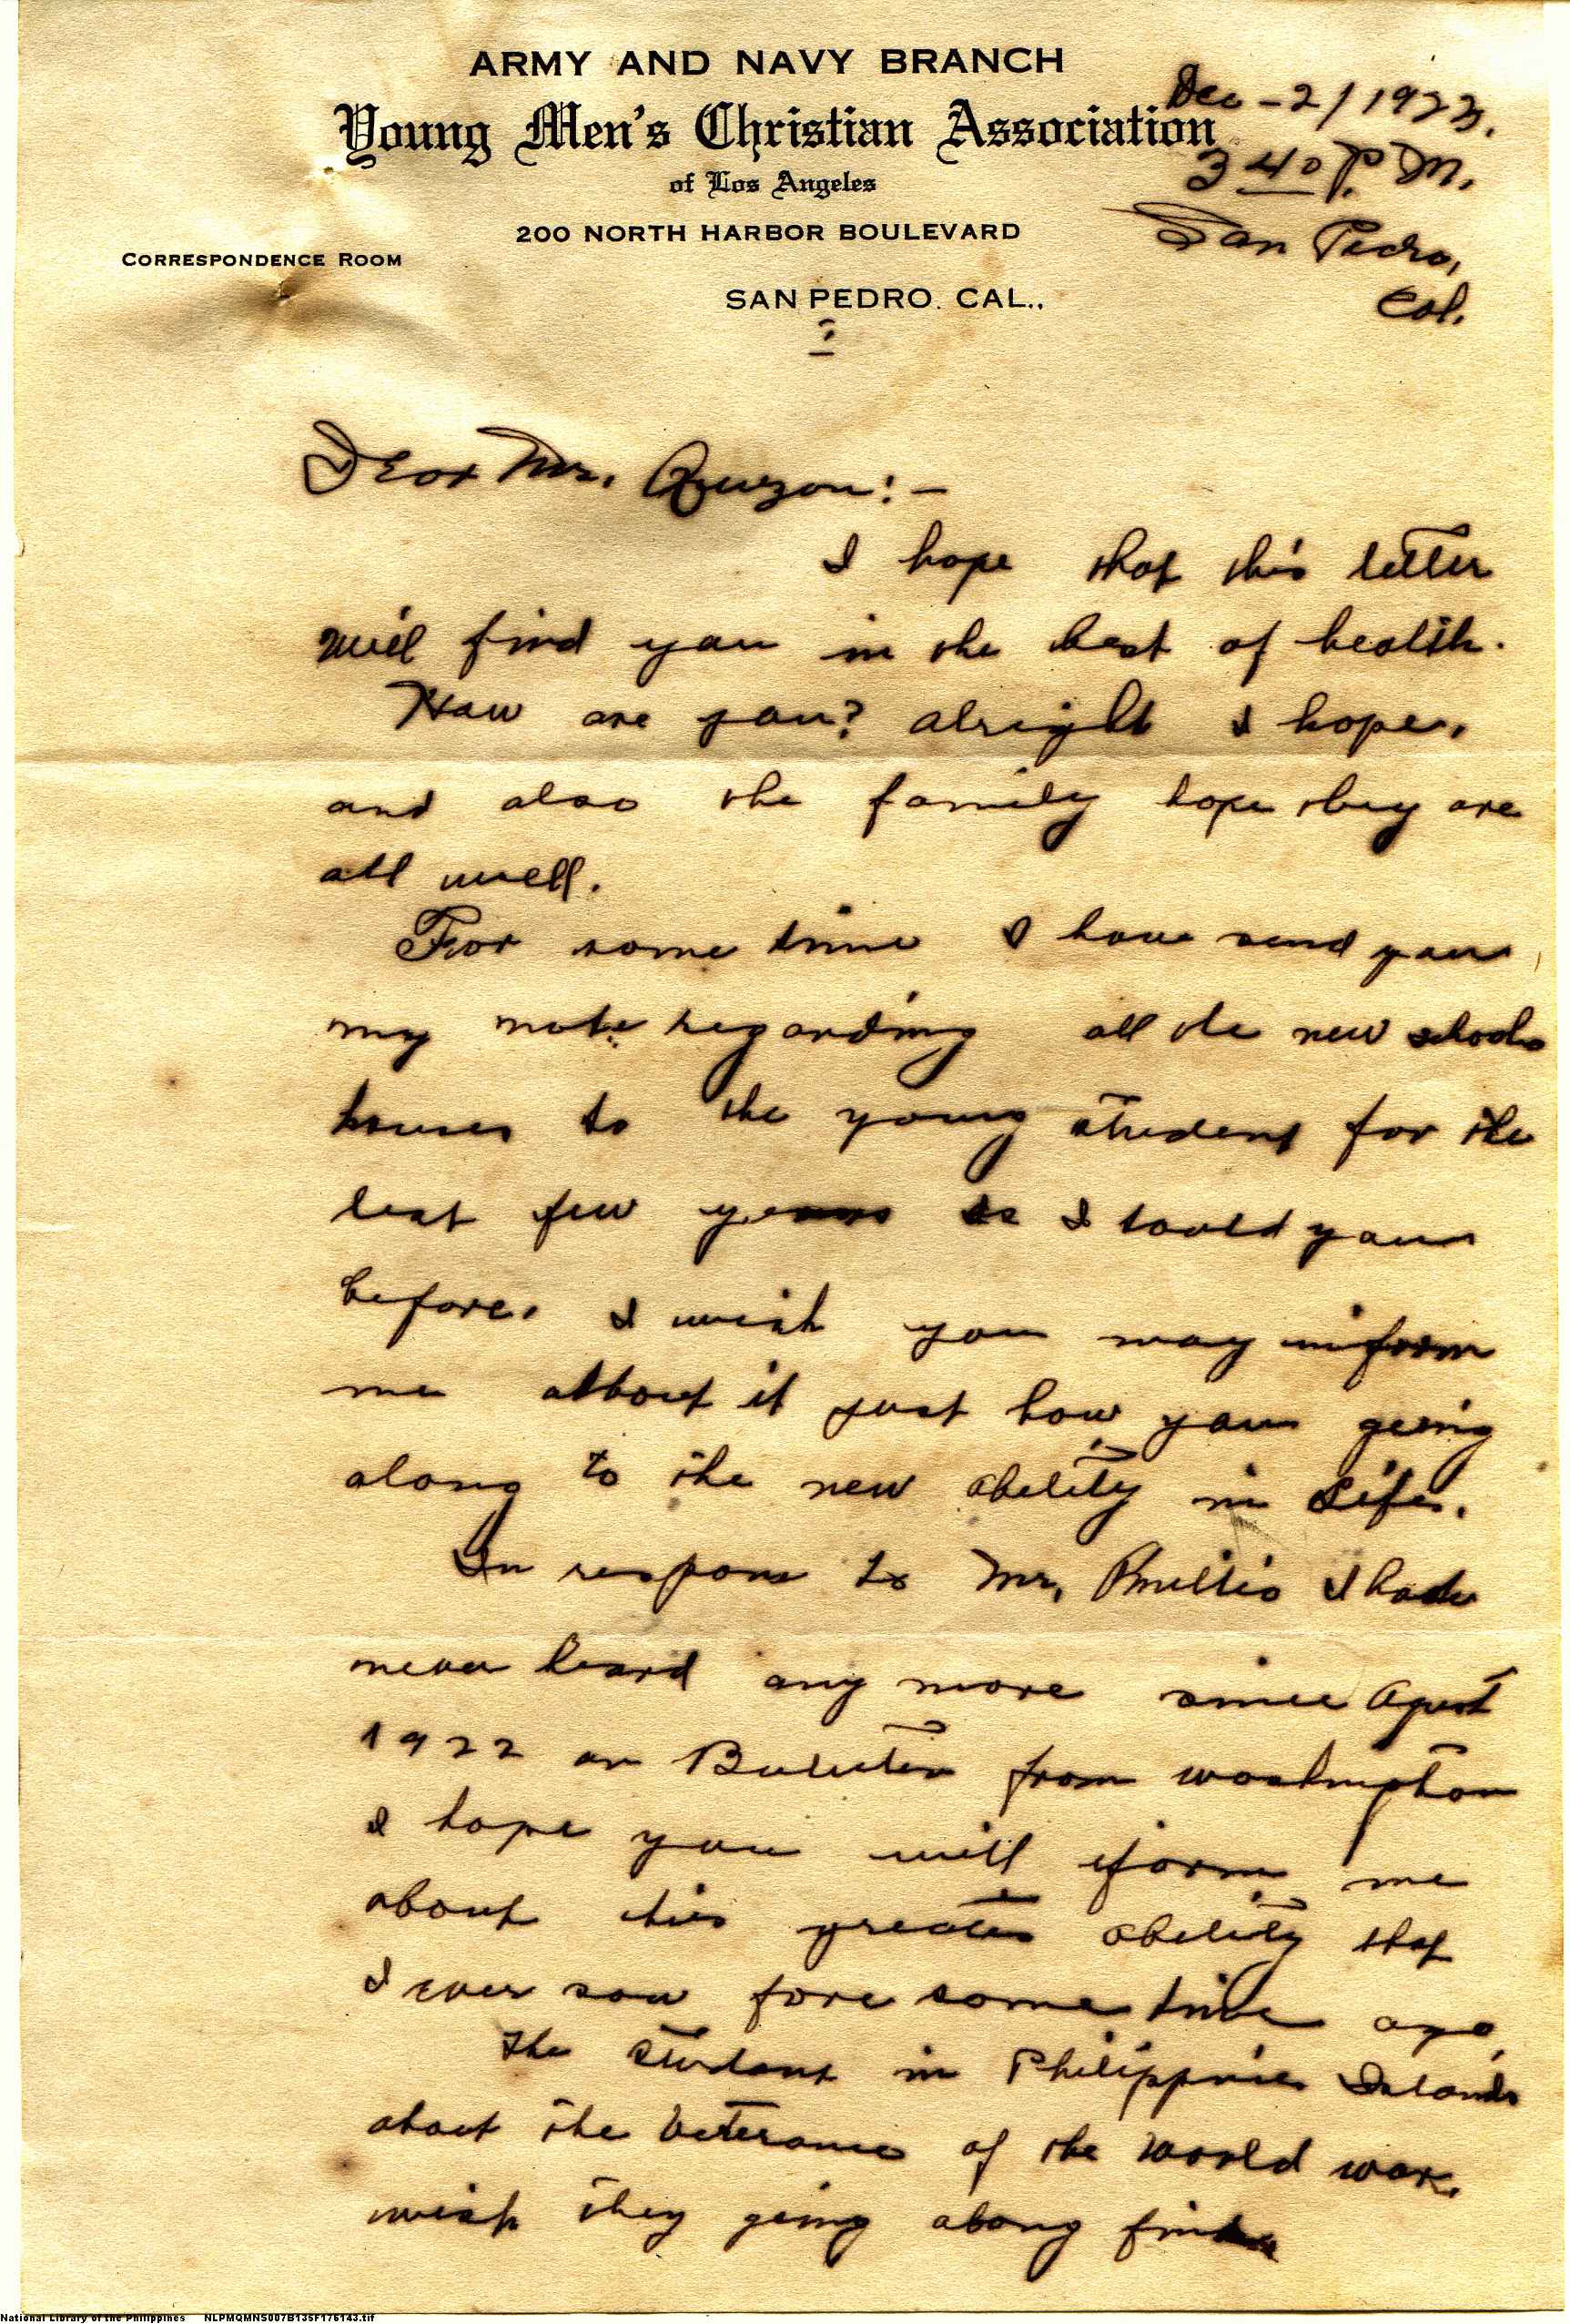 ARMY AND NAVY BRANCH
Young Men's Christian Association
of Los Angeles
200 NORTH HARBOR BOULEVARD
CORRESPONDENCE ROOM
SAN PEDRO. CAL..
Dec - 2 / 1923.
3 40 P. M.
San Pedro,
Cal.
Dear Mr. Quezon: -
I hope that this letter
will find you in the best of health.
How are you? alright I hope.
and also the family hope they are
all well.
For some time I have send you
my note regarding all the new schools
houses to the young student for the
last few years as I tould you
before. I wish you may inform
me about it just how you going
along to the new ability in Life.
In respons to Mr. I have
never heard any more since Agust
1922 on from washington
I hope you will iform me
about this greates ability that
I ever saw fore some time ago.
The student in Philippines Islands
about the Veterans of the World war.
wish they going along fine
National Library of the Philippines NLPMQMNS007B135F176143.tif